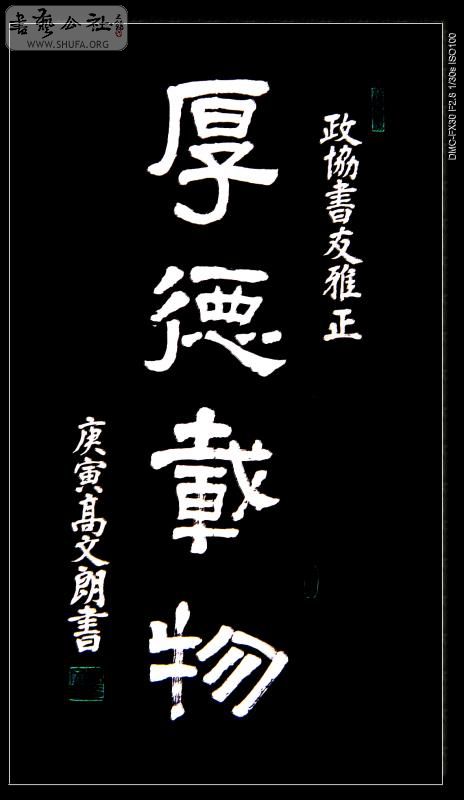 書藝公社
WWW.SHUFA.ORG
DMC-FX30 F2.8 1/30s ISO100
政協書友雅正
厚德載物
庚寅高文朗書